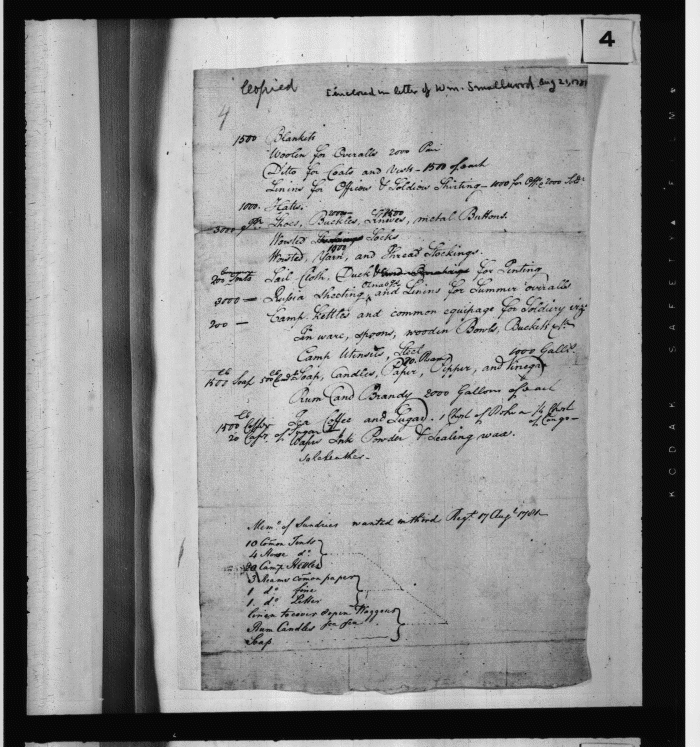 4
Copied
Enclosed in letter of Wm. Smallwood Aug 21, 1781
4
1500 Blankets
Woolen for Overalls 2000 Pair
Ditto for Coats and Vests - 1500 of each
Linins for Officers & Soldiers Shirting - 1000 for Offrs 2000 Soldrs
1000 Hats.
3000 Shoes, Buckles, metal Buttons.
Worsted Socks
Worsted, Yarn, and Thread Stockings.
200 Tents Sail Cloth, Duck for Tenting
3000 - Russia Sheeting and Linins for Summer overalls
200 - Camp Kettles and common equipage for Soldiery in
Tin ware, Spoons, wooden Bowls, Buckets &c
Camp Utensils, Steel
1000 Gallns
Soap, Candles, Paper, Pepper, and Vinegar
Rum and Brandy 2000 Gallons of each
1500 Coffee Tea Coffee and Sugar. 1 Chest of Bohea 1/4 Chest of Congo -
20 of Sugar
Wafers Ink Powder & Sealing wax.
Soleleather -
Memo of Sundries wanted in third Regt. 17 Augt 1781
10 Common Tents
4 Horse do
20 Camp Kettles
3 Reams common paper
1 do fine
1 do Letter
linen to cover open Waggons
Rum Candles
Soap
KODAK SAFETY FILM